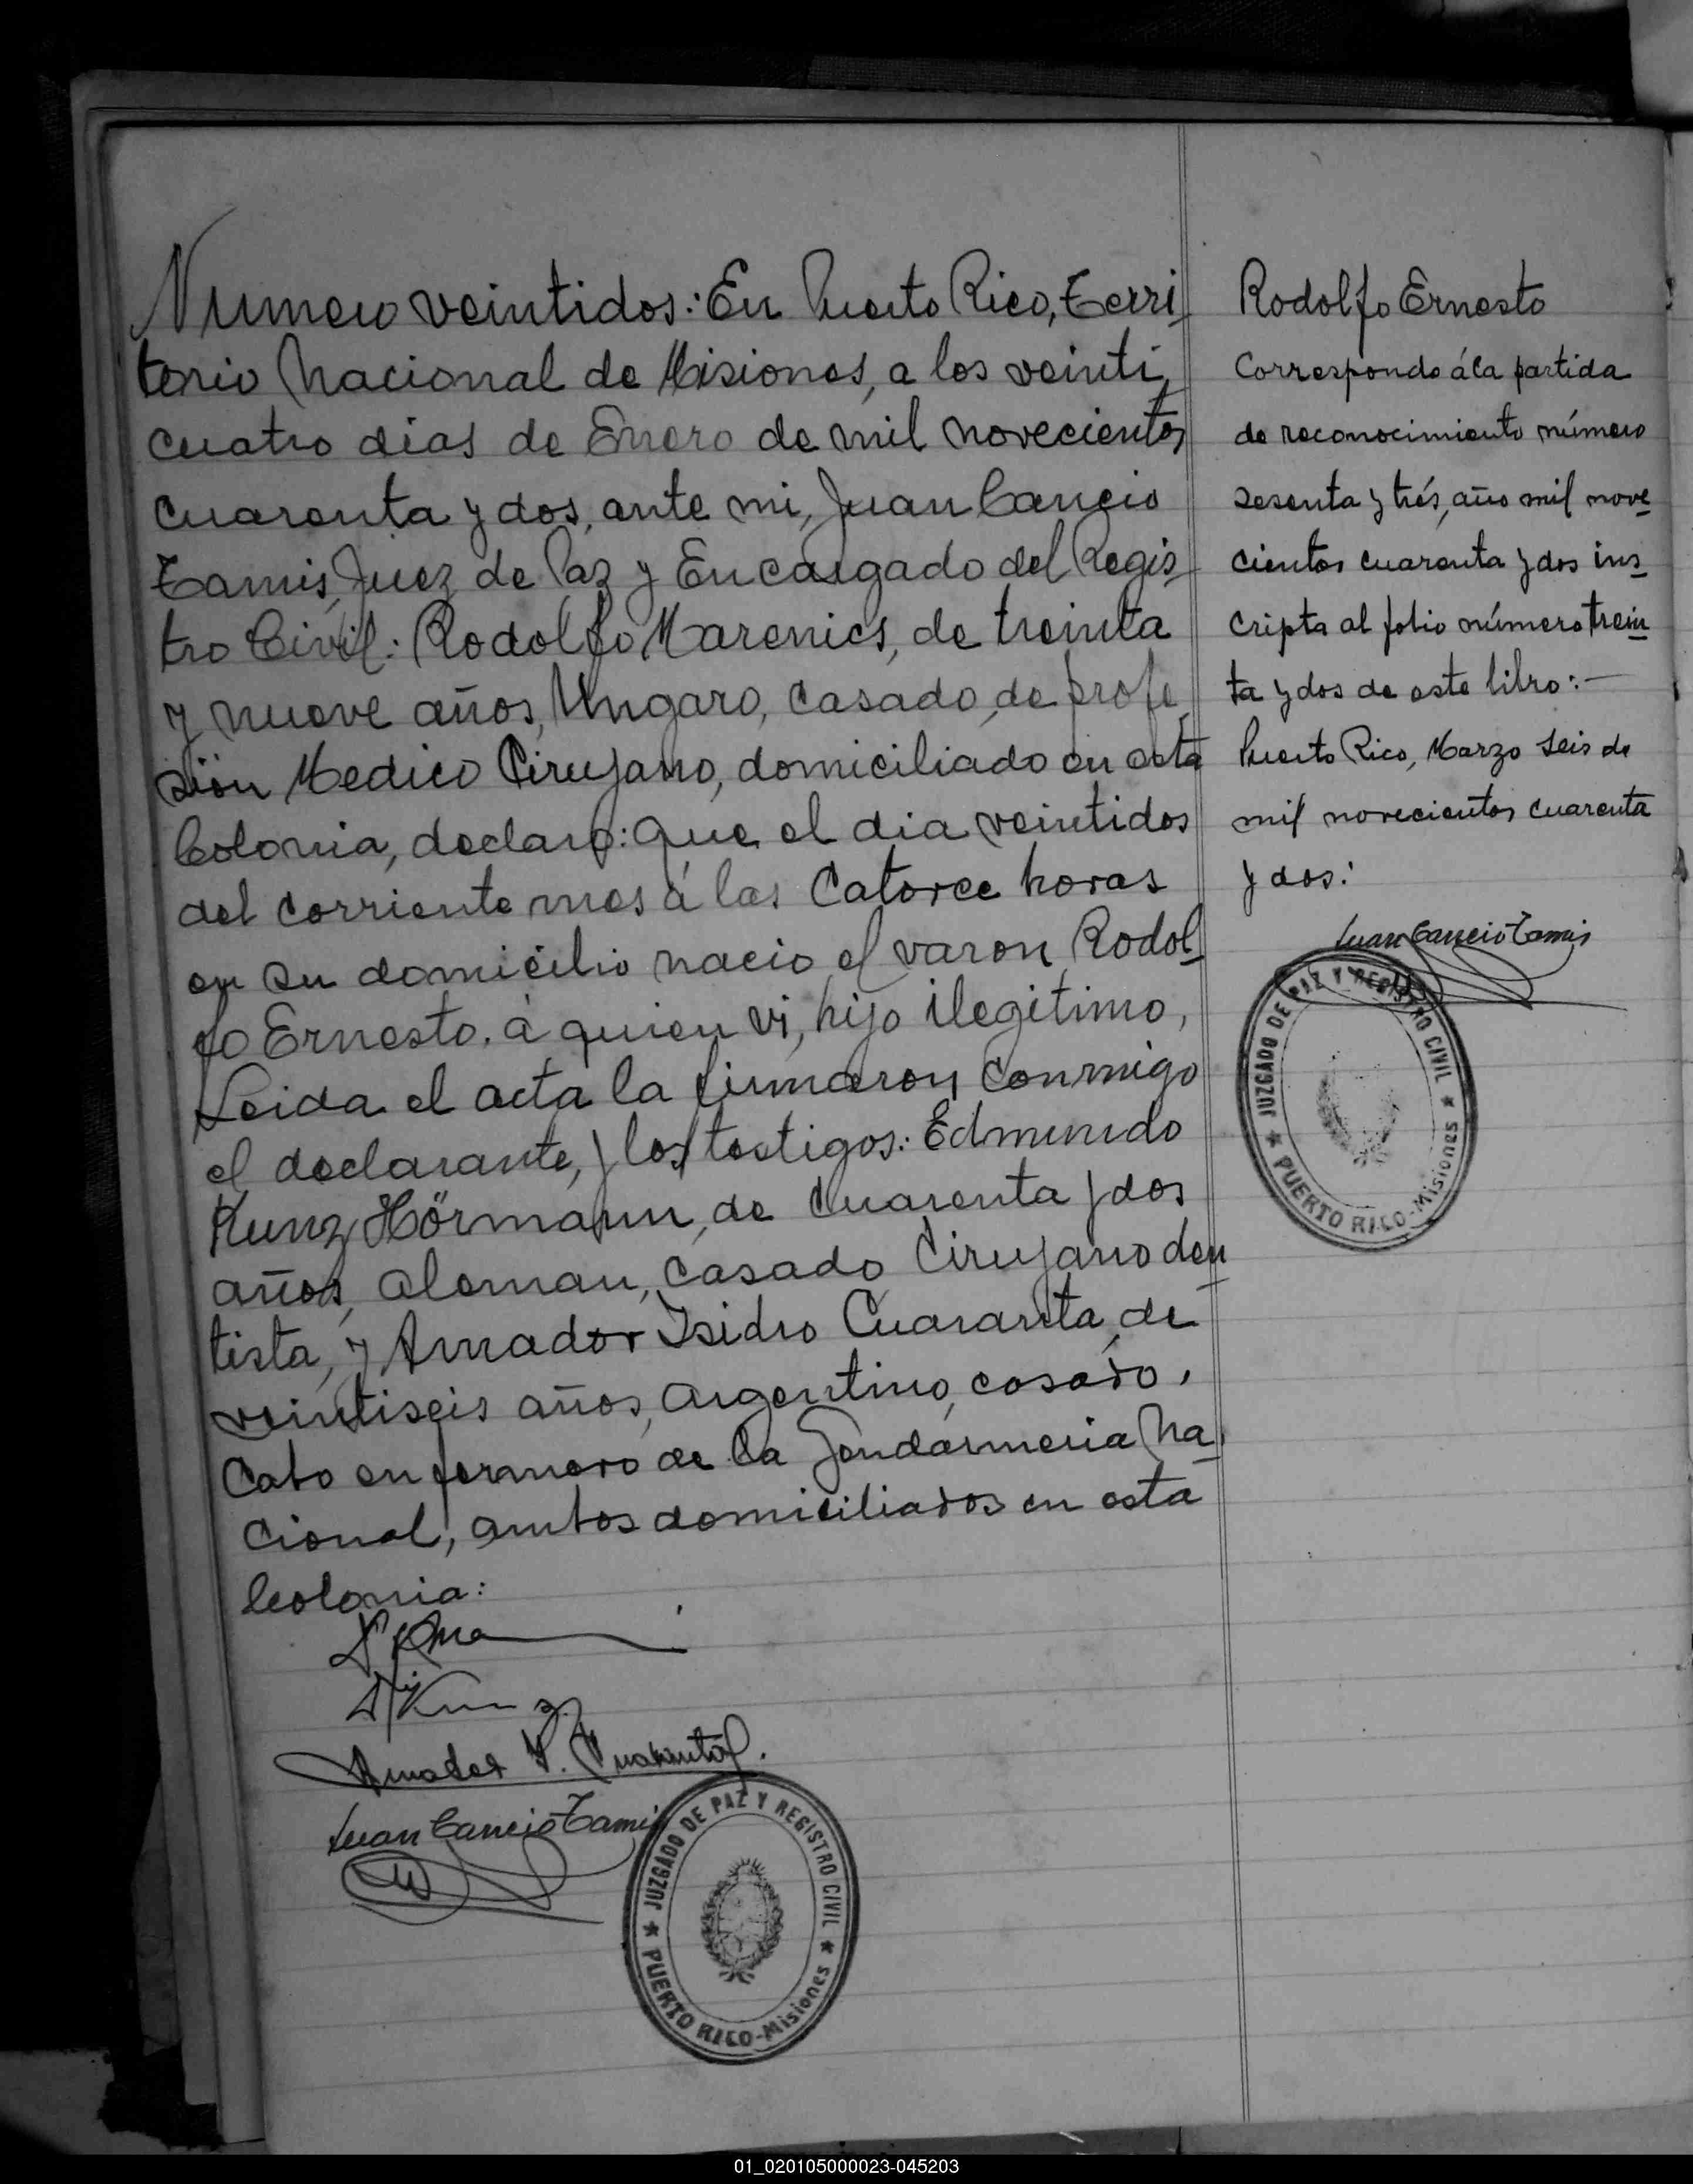 Numero veintidos: En Puerto Rico, Terri
torio Nacional de Misiones, a los veinti
cuatro dias de Enero de mil novecientos
cuarenta y dos, ante mi, Juan Cancio
Tamis, Juez de Paz y Encargado del Regis
tro Civil: Rodolfo Marenics, de treinta
y nueve años, Ungaro, casado, de profe
sión Medico Cirujano, domiciliado en esta
Colonia, declaro: que el dia veintidos
del corriente mes á las Catorce horas
en su domicilio nacio el varon Rodol
fo Ernesto, á quien vi, hijo ilegitimo,
Leida el acta la firmaron conmigo
el declarante, y los testigos: Edmundo
Kunz Hörmann, de cuarenta y dos
años, aleman, casado, Cirujano den
tista, y Amador Isidro Cuaranta, de
veintiseis años, argentino, casado,
Cabo enfermero de la Jendarmeria Na
cional, ambos domiciliados en esta
Colonia:
Kunz
Amador I. Cuaranta.
Juan Cancio Tamis
JUZGADO DE PAZ Y REGISTRO CIVIL
PUERTO RICO-Misiones
Rodolfo Ernesto
Corresponde á la partida
de reconocimiento número
sesenta y trés, año mil nove
cientos cuarenta y dos ins
cripta al folio número trein
ta y dos de este libro:—
Puerto Rico, Marzo seis de
mil novecientos cuarenta
y dos:
Juan Cancio Tamis
JUZGADO DE PAZ Y REGISTRO CIVIL
PUERTO RICO-Misiones
01_020105000023-045203